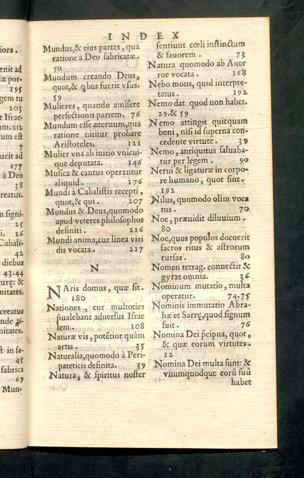 INDEX
Mundus, & eius partes, qua
ratione à Deo fabricatæ.
50
Mundum creando Deus,
quot, & qbus fuerit vsus.
59
Mulieres, quando amisere
perfectionis partem. 76
Mundum esse æternum, qua
ratione nititur probare
Aristoteles. 121
Mulier vna ab initio vnicui-
que deputata. 146
Musica & cantus operantur
aliquid. 176
Mundi à Cabalistis recepti,
quot, & qui. 207
Mundus & Deus, quomodo
apud veteres philosophos
definiti. 216
Mundi anima, cur linea viri
dis vocata. 217
N
NAris domus, quæ sit.
180
Nationes, cur multoties
pualebant aduersus Israe
lem. 108
Naturæ vis, potētior quàm
artis. 35
Naturalia, quomodo à Peri-
pateticis definita. 39
Natura, & spiritus noster
sentiunt cœli instinctum
& fauorem. 73
Natura quomodo ab Auer
roe vocata. 168
Nebo mons, quid interpre-
tatus. 192
Nemo dat quod non habet.
29. & 59
Nemo attingit quicquam
boni, nisi id superna con-
cedente virtute. 39
Nemo, antiquitus saluaba-
tur per legem. 90
Nerui & ligaturæ in corpo-
re humano, quot sint.
192
Nilus, quomodo olim voca
tus. 70
Noe, præuidit diluuium.
80
Noe, quos populos docuerit
sacros ritus & astrorum
cursus. 80
Nomen tetrag. connectit &
gyrat omnia. 36
Nominum mutatio, multa
operatur. 74-75
Nominis immutatio Abra-
hæ et Sarre, quod signum
fuit. 76
Nomina Dei pcipua, quot,
& quæ eorum virtutes.
12
Nomina Dei multa sunt: &
vnumquodque eorū suū
habet